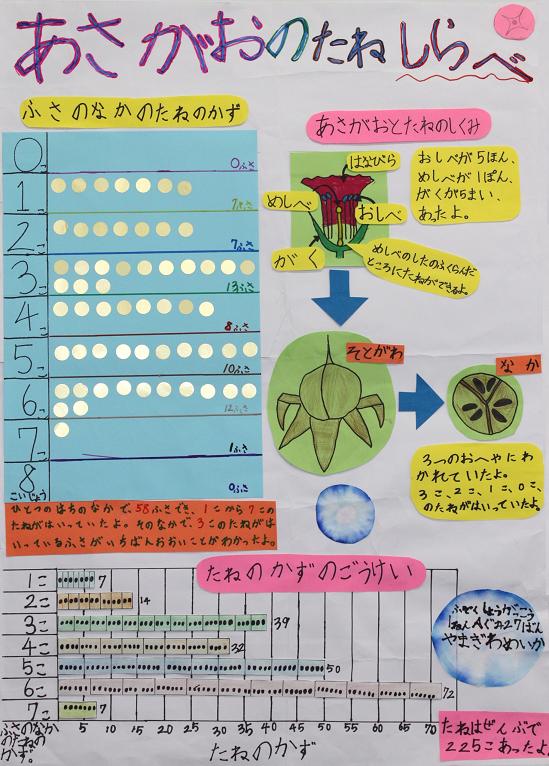 あさがおのたねしらべ
ふさのなかのたねのかず
0こ
0ふさ
1こ
7ふさ
2こ
7ふさ
3こ
13ふさ
4こ
8ふさ
5こ
10ふさ
6こ
12ふさ
7こ
1ふさ
8こいじょう
0ふさ
ひとつのはちのなかで、58ふさでき、1こから7この
たねがはいっていたよ。そのなかで、3このたねがは
いっているふさがいちばんおおいことがわかったよ。
あさがおとたねのしくみ
はなびら
めしべ
おしべ
がく
おしべが5ほん、
めしべが1ぽん、
がくが5まい、
あったよ。
めしべのしたのふくらんだ
ところにたねができるよ。
そとがわ
なか
3つのおへやにわ
かれていたよ。
3こ、2こ、1こ、0こ、
のたねがはいっていたよ。
たねのかずのごうけい
1こ 7
2こ 14
3こ 39
4こ 32
5こ 50
6こ 72
7こ 7
ふさのなか
のたねの
かず。
5 10 15 20 25 30 35 40 45 50 55 60 65 70
たねのかず
ふぞくしょうがっこう
1ねんAぐみ27ばん
やまざわめいか
たねはぜんぶで
225こあったよ。